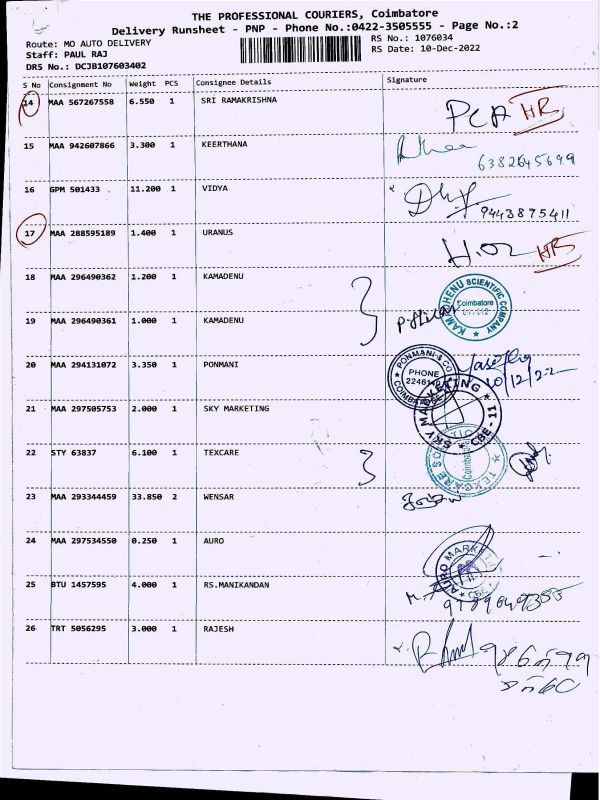 THE PROFESSIONAL COURIERS, Coimbatore
Delivery Runsheet - PNP - Phone No.:0422-3505555 - Page No.:2
Route: MO AUTO DELIVERY RS No.: 1076034
Staff: PAUL RAJ RS Date: 10-Dec-2022
DRS No.: DCJB107603402
S No Consignment No Weight PCS Consignee Details Signature
14 MAA 567267558 6.550 1 SRI RAMAKRISHNA HR
15 MAA 942607866 3.300 1 KEERTHANA
16 GPM 501433 . 11.200 1 VIDYA 9443875411
17 MAA 288595189 1.400 1 URANUS HR
18 MAA 296490362 1.200 1 KAMADENU
KAMADHENU SCIENTIFIC COMPANY
Coimbatore
19 MAA 296490361 1.000 1 KAMADENU
20 MAA 294131072 3.350 1 PONMANI
PONMANI & CO
PHONE
10/12/22
21 MAA 297505753 2.000 1 SKY MARKETING
SKY MARKETING CBE-11
22 STY 63837 6.100 1 TEXCARE
23 MAA 293344459 33.850 2 WENSAR
24 MAA 297534550 0.250 1 AURO
25 BTU 1457595 4.000 1 RS.MANIKANDAN
26 TRT 5056295 3.000 1 RAJESH